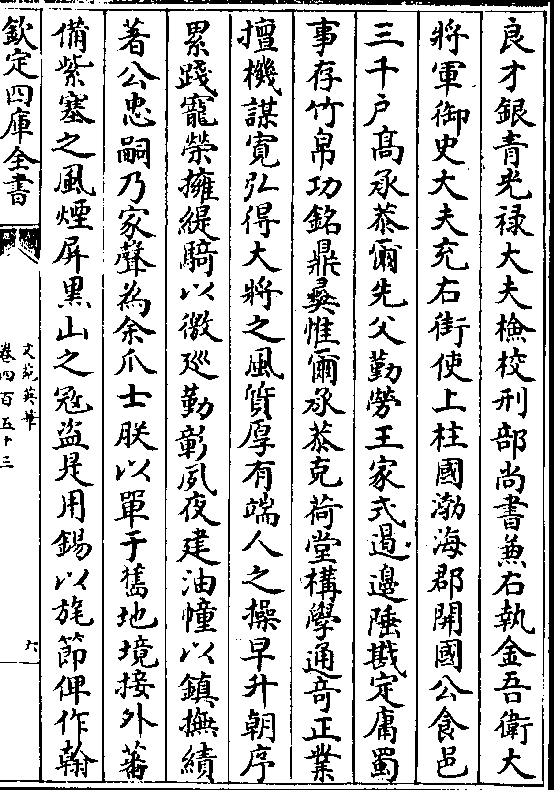 良才銀青光禄大夫檢校刑部尚書兼右執金吾衛大
將軍御史大夫充右街使上柱國渤海郡開國公食邑
三千户髙承恭爾先父勤勞王家式遏邊陲戡定庸蜀
事存竹帛功銘鼎彛惟爾承恭克荷堂構學通竒正業
擅機謀寛弘得大將之風質厚有端人之操早升朝序
累踐寵榮擁緹騎以徼廵勤彰夙夜建油幢以鎮撫績
著公忠嗣乃家聲為余爪士朕以單于舊地境接外蕃
備紫塞之風煙屏黒山之冦盗是用錫以旄節俾作翰
欽定四庫全書
文苑英華
卷四百五十三
六